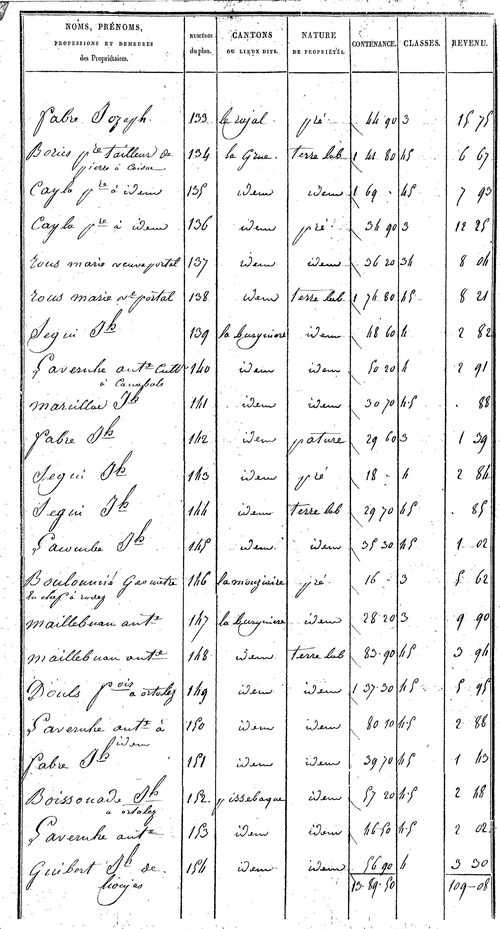 NOMS, PRÉNOMS, PROFESSIONS ET DEMEURES des Propriétaires. NUMÉROS du plan. CANTONS OU LIEUX DITS. NATURE DE PROPRIÉTÉS. CONTENANCE. CLASSES. REVENU.
fabre Jozeph. 133 le rojal pré 44 90 3 15 75
Bories pre tailleur de 134 la Grue terre lab 1 41 80 45 6 67
pierre à
Cayla pre à idem 135 idem idem 1 69 - 45 7 93
Cayla pre à idem 136 idem pré 34 90 3 12 25
rous marie veuve portal 137 idem idem 36 20 34 8 04
rous marie ve portal 138 idem terre lab 1 74 80 45 8 21
Segui Jh 139 idem 48 60 4 2 82
Lavernhe ante 140 idem idem 50 20 4 2 91
à
marcillac Jh 141 idem idem 30 70 4-5 . 88
fabre Jh 142 idem pature 29 60 3 1 39
Segui Jh 143 idem pré 18 - 4 2 84
Segui Jh 144 idem terre lab 29 70 45 . 85
Lacombe Jh 145 idem idem 35 30 45 1 02
Boulounié Geometre 146 pré 16 - 3 5 62
en chef à rodez
maillebuau ante 147 idem 28 20 3 9 90
maillebuau ante 148 idem terre lab 83-90 45 3 94
Douls fois a ortolez 149 idem idem 1 37-30 45 5 95
Lavernhe ante à 150 idem idem 80 10 4-5 2 88
idem
fabre Jh 151 idem idem 39 70 45 1 43
Boissonade Jh 152 pissebaque idem 57 20 4-5 2 48
a ortolez
Lavernhe ante 153 idem idem 46-50 4-5 2 02
Guibert Jh de 154 idem idem 56 90 4 3 30
lioujes 13-89-50 109-08